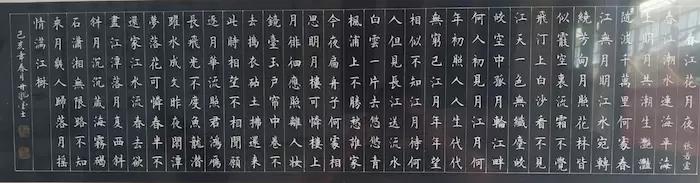 春江花月夜 張若虛
春江潮水連海平海
上明月共潮生灩灩
隨波千萬里何處春
江無月明江水宛轉
繞芳甸月照花林皆
似霰空裏流霜不覺
飛汀上白沙看不見
江天一色無纖塵皎
皎空中孤月輪江畔
何人初見月江月何
年初照人人生代代
無窮已江月年年望
相似不知江月待何
人但見長江送流水
白雲一片去悠悠青
楓浦上不勝愁誰家
今夜扁舟子何處相
思明月樓可憐樓上
月徘徊應照離人妝
鏡臺玉戶帘中卷不
去搗衣砧上拂還來
此時相望不相聞願
逐月華流照君鴻雁
長飛光不度魚龍潛
躍水成文昨夜閑潭
夢落花可憐春半不
還家江水流春去欲
盡江潭落月復西斜
斜月沉沉藏海霧碣
石瀟湘無限路不知
乘月幾人歸落月搖
情滿江樹
己亥年春月